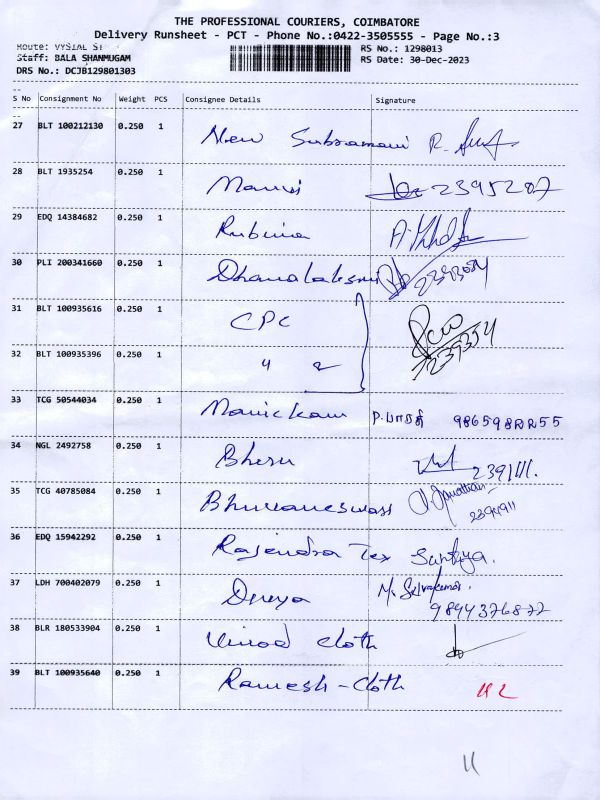 THE PROFESSIONAL COURIERS, COIMBATORE
Delivery Runsheet - PCT - Phone No.:0422-3505555 - Page No.:3
Route: VYSIAL ST
RS No.: 1298013
Staff: BALA SHANMUGAM
RS Date: 30-Dec-2023
DRS No.: DCJB129801303
S No Consignment No Weight PCS Consignee Details Signature
27 BLT 100212130 0.250 1 New Subramani R.
28 BLT 1935254 0.250 1 2395207
29 EDQ 14384682 0.250 1 Rubina
30 PLI 200341660 0.250 1 Dhanalaksmi
31 BLT 100935616 0.250 1 CPC
32 BLT 100935396 0.250 1 4 2
33 TCG 50544034 0.250 1 Manickam P. பாரதி
34 NGL 2492758 0.250 1 2391111.
35 TCG 40785084 0.250 1 Bhuvaneswari
36 EDQ 15942292 0.250 1 Rajendra Tex Santhya.
37 LDH 700402079 0.250 1 M. Selvakumar. 9894376872
38 BLR 180533904 0.250 1 Vinod cloth
39 BLT 100935640 0.250 1 Ramesh-Cloth
11